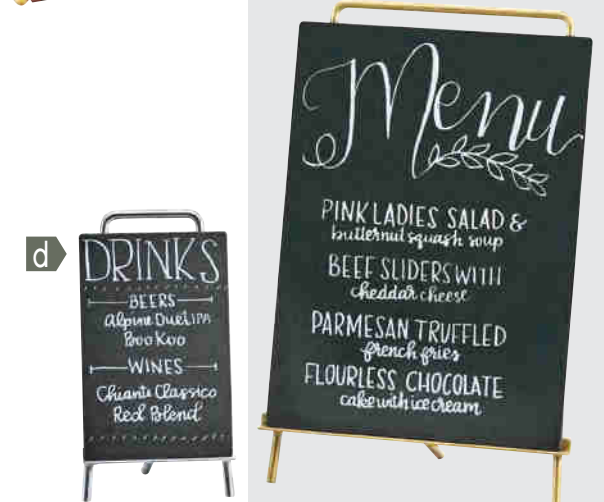 d
DRINKS
BEERS
Alpine Duet IPA
Boo Koo
WINES
Chianti Classico
Red Blend
Menu
PINK LADIES SALAD &
butternut squash soup
BEEF SLIDERS WITH
cheddar cheese
PARMESAN TRUFFLED
french fries
FLOURLESS CHOCOLATE
cake with ice cream